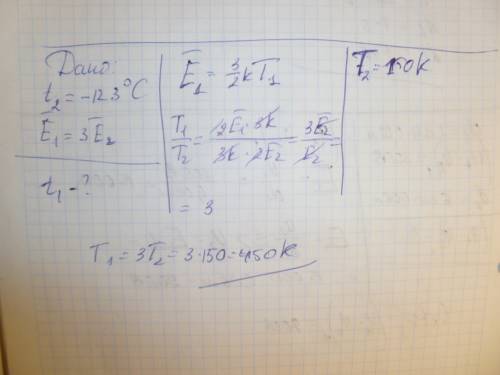 Дано:
t₂ = -123°C
E̅₁ = 3E̅₂
t₁ - ?
E̅₁ = 3/2 kT₁
T₁/T₂ = 2E̅₁·3k / 3k·2E̅₂ = 3E̅₂ / E̅₂ =
= 3
T₂ = 150k
T₁ = 3T₂ = 3·150 = 450k